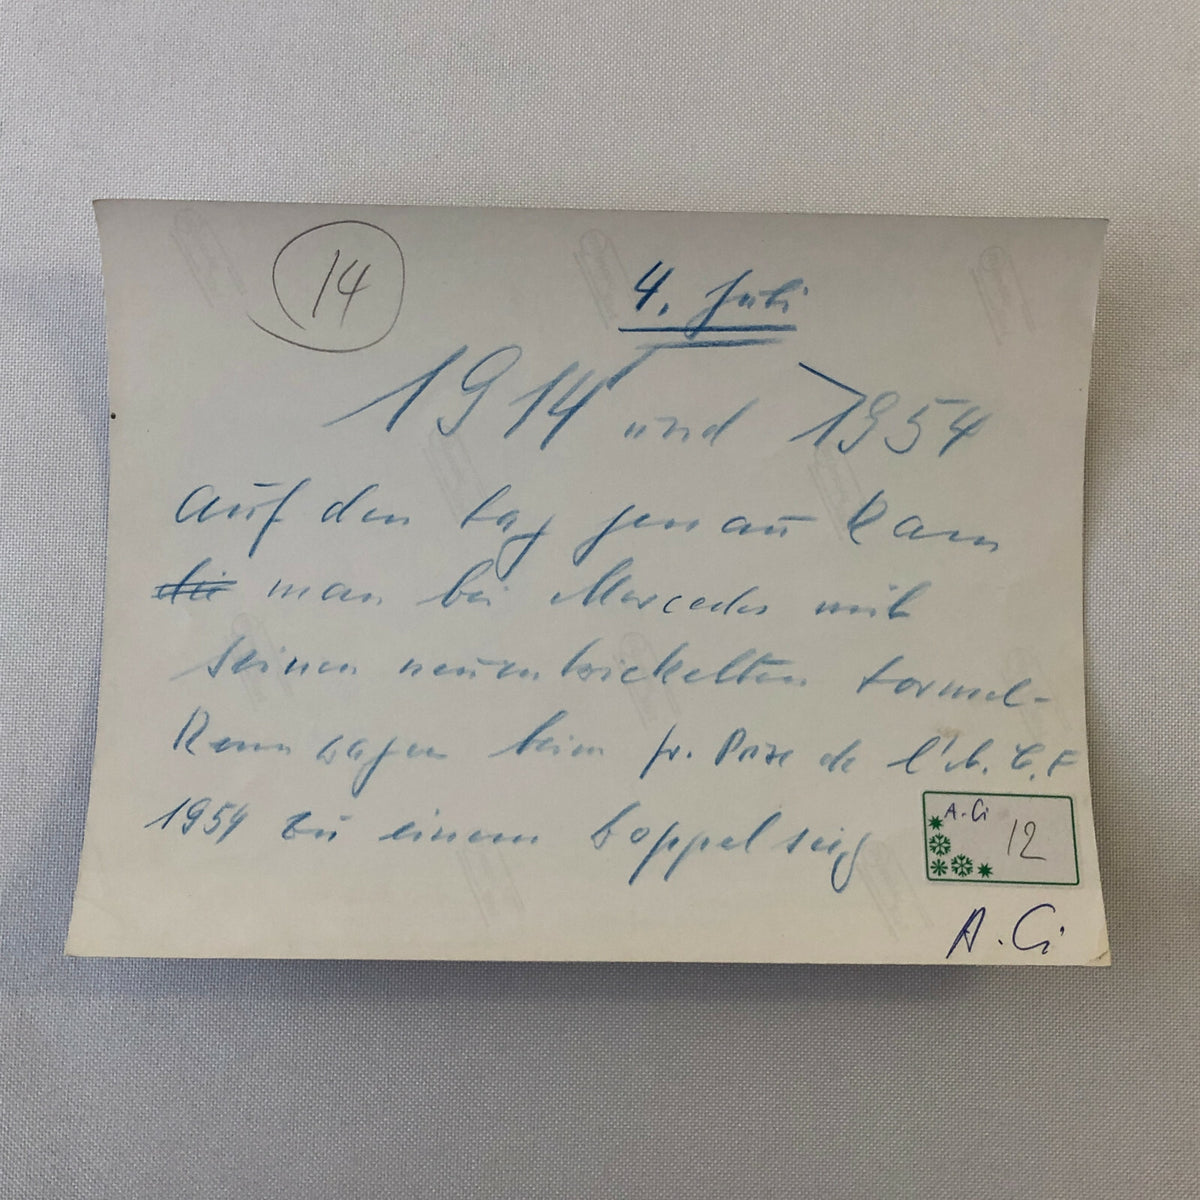 14
4. Juli
1914 und 1954
auf den tag genau kam
die man bei Mercedes mit
seinen neuentwickelten Formel-
Rennwagen beim gr. Prix de l'A.C.F
1954 zu einem Doppelsieg
A.Ci
12
A.Ci